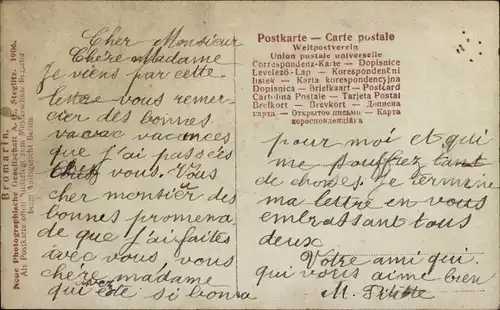 Cher Monsieur
Chère Madame
Je viens par cette
lettre vous remer-
cier des bonnes
vacanses
que j'ai passées
vous. Vous
cher montieur des
bonnes promena,
de que j'ai faites
avec vous, vous
chère madame
qui avez été si bonne
pour moi et qui
me tant
de choses. Je termine
ma lettre en vous
embrassant tous
deux
Votre ami qui
qui vous aime bien
M.
Postkarte — Carte postale
Weltpostverein
Union postale universelle
Correspondenz-Karte — Dopisnice
Levelező-Lap — Korespondenční
lístek — Karta korespondencyjna
Dopisnica — Briefkaart — Postcard
Cartolina Postale — Tarjeta Postal
Brefkort — Brevkort — Дописна
карта — Открытое письмо — Карта
кореспонденција
Bromarin.
Neue Photographische Gesellschaft A. G. Steglitz. 1906.
Als Postkarte